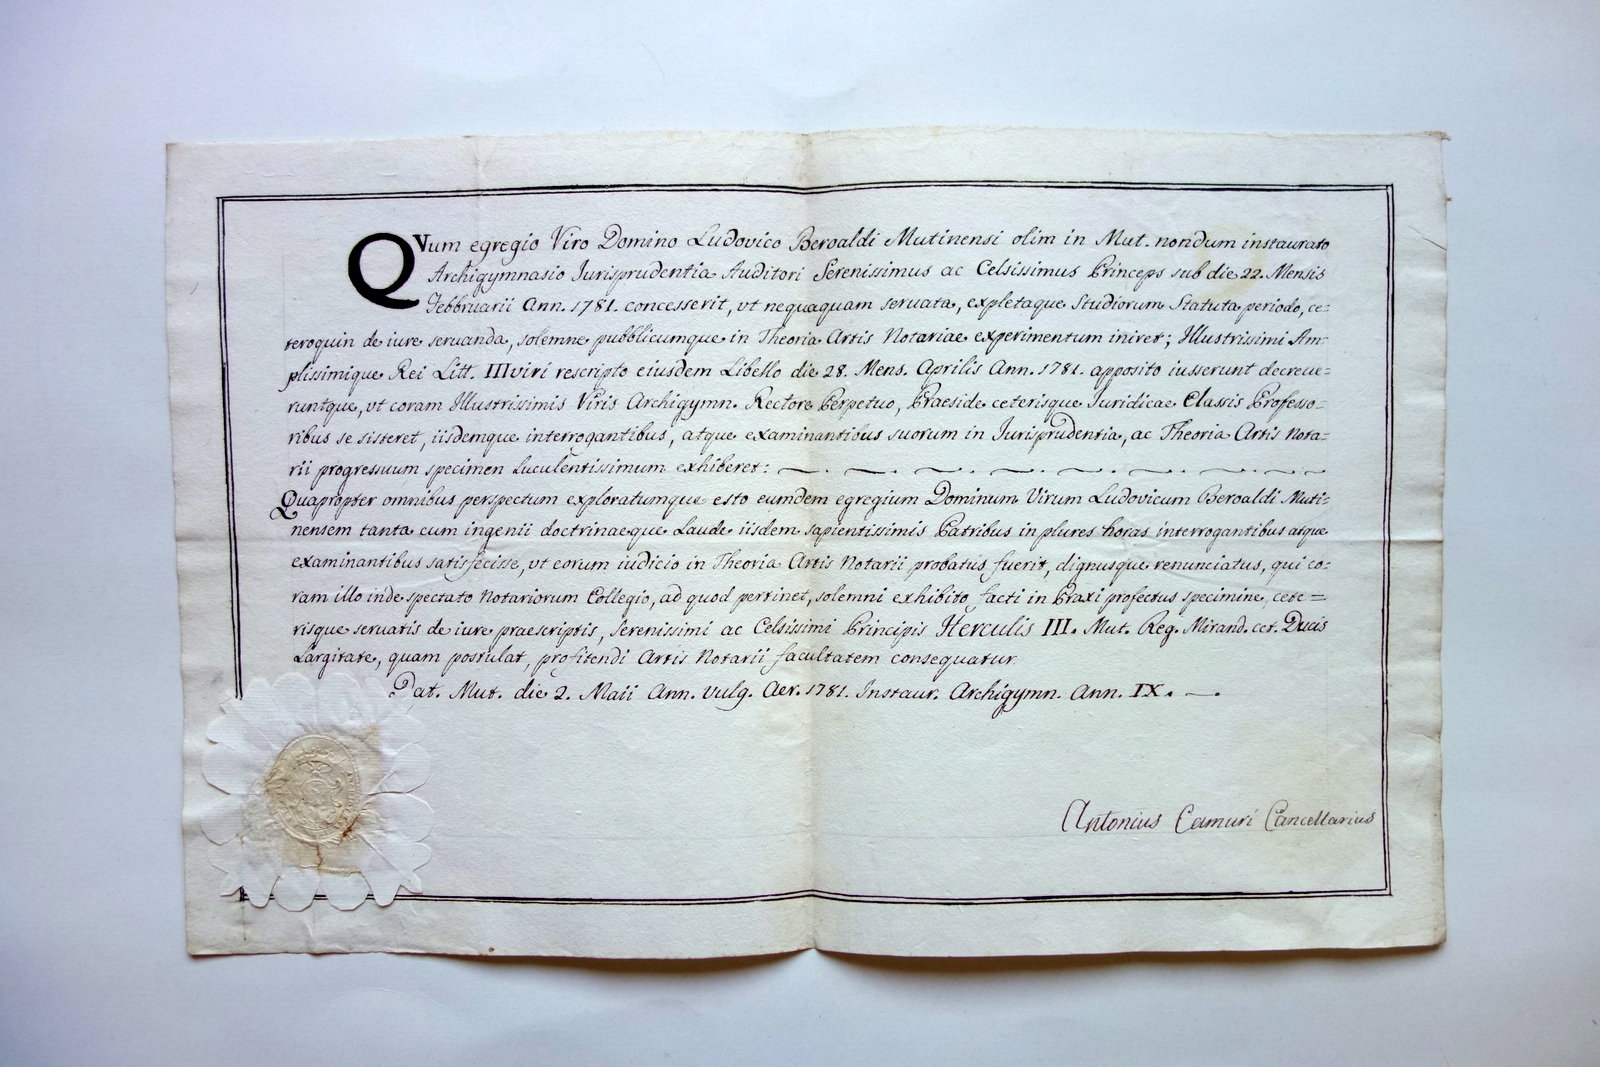 QVum egregio Viro Domino Ludovico Beroaldi Mutinensi olim in Mut. nondum instaurato
Archigymnasio Jurisprudentia Auditori Serenissimus ac Celsissimus Princeps sub die 22. Mensis
Febbruarii Ann. 1781. concesserit, vt nequaquam seruata, expletaque Studiorum Statuta periodo, ce=
teroquin de iure seruanda, solemne pubblicumque in Theoria Artis Notariae experimentum iniret; Illustrissimi Am=
plissimique Rei Litt. IIIviri rescripto eiusdem Libello die 28. Mens. Aprilis Ann. 1781. apposito iusserunt decreue=
runtque, vt coram Illustrissimis Viris Archigymn. Rectore Perpetuo, Praeside ceterisque Juridicae Classis Professo=
ribus se sisteret, iisdemque interrogantibus, atque examinantibus suorum in Jurisprudentia, ac Theoria Artis Nota=
rii progressuum specimen luculentissimum exhiberet:
Quapropter omnibus perspectum exploratumque esto eumdem egregium Dominum Virum Ludovicum Beroaldi Muti=
nensem tanta cum ingenii doctrinaeque Laude iisdem sapientissimis Patribus in plures horas interrogantibus atque
examinantibus satisfecisse, vt eorum iudicio in Theoria Artis Notarii probatus fuerit, dignusque renunciatus, qui co=
ram illo inde spectato Notariorum Collegio, ad quod pertinet, solemni exhibito facti in Praxi profectus specimine, cete=
risque seruatis de iure praescriptis, Serenissimi ac Celsissimi Principis Herculis III. Mut. Reg. Mirand. cet. Ducis
Largitate, quam postulat, profitendi Artis Notarii facultatem consequatur
Dat. Mut. die 2. Maii Ann. vulg. Aer. 1781. Instaur. Archigymn. Ann. IX.
Antonius Camuri Cancellarius